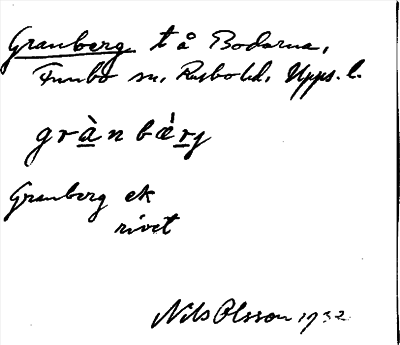 Granberg t å Bodarna,
Funbo sn, Rasbo hd, Upps. l.
grànbæ̀rj
Granberg ek
rivet
Nils Olsson 1932